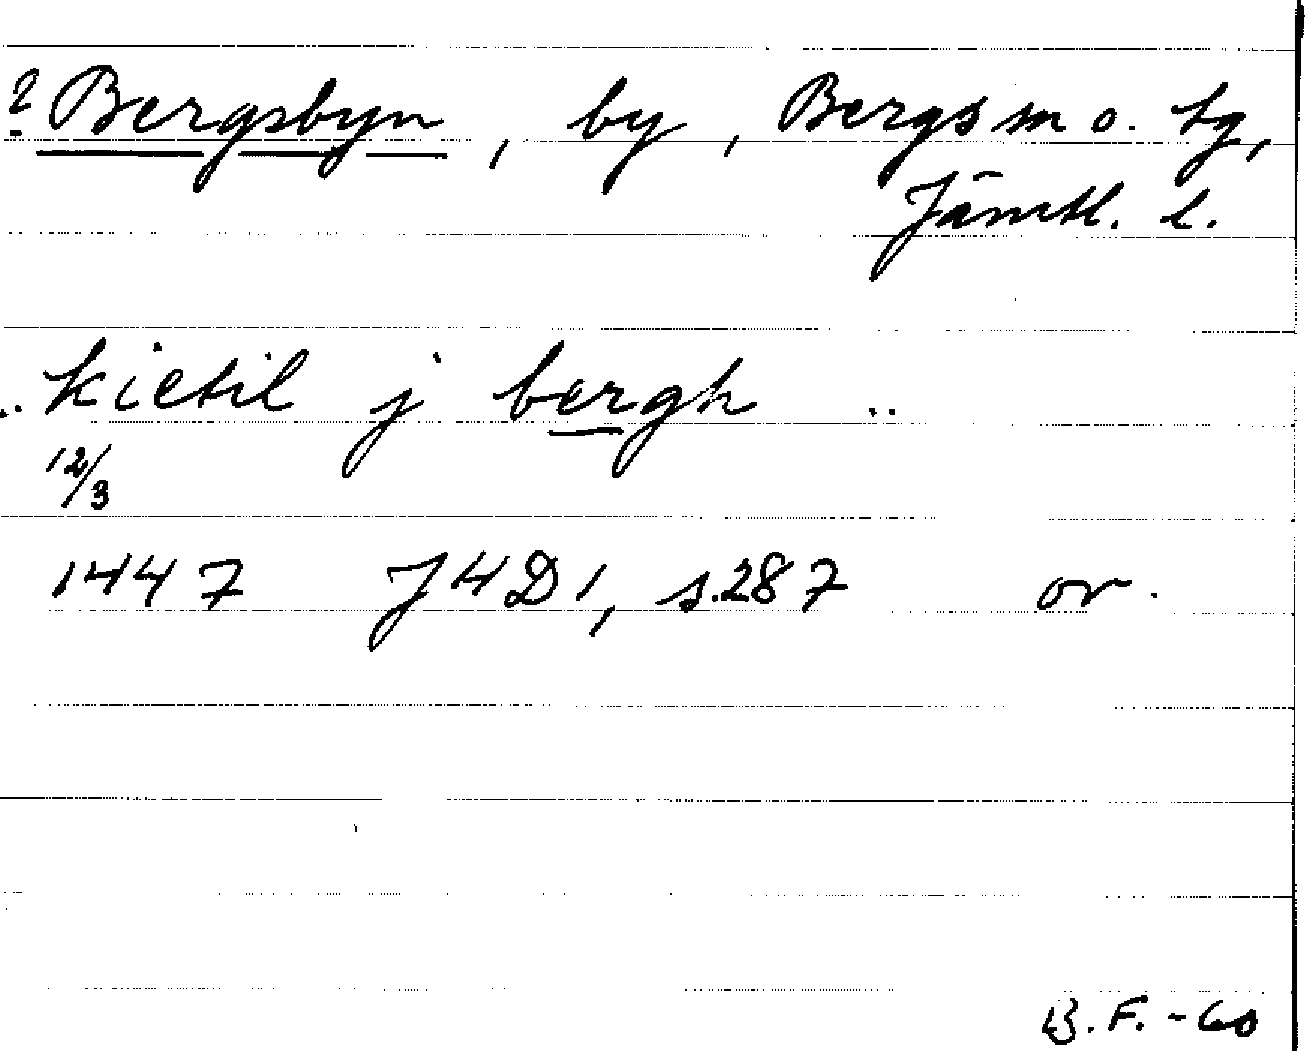 ? Bergsbyn, by, Bergs sn o. tg,
Jämtl. l.
.. kietil j bergh ..
12/3
1447 JHD1, s.287 or.
B.F. -60